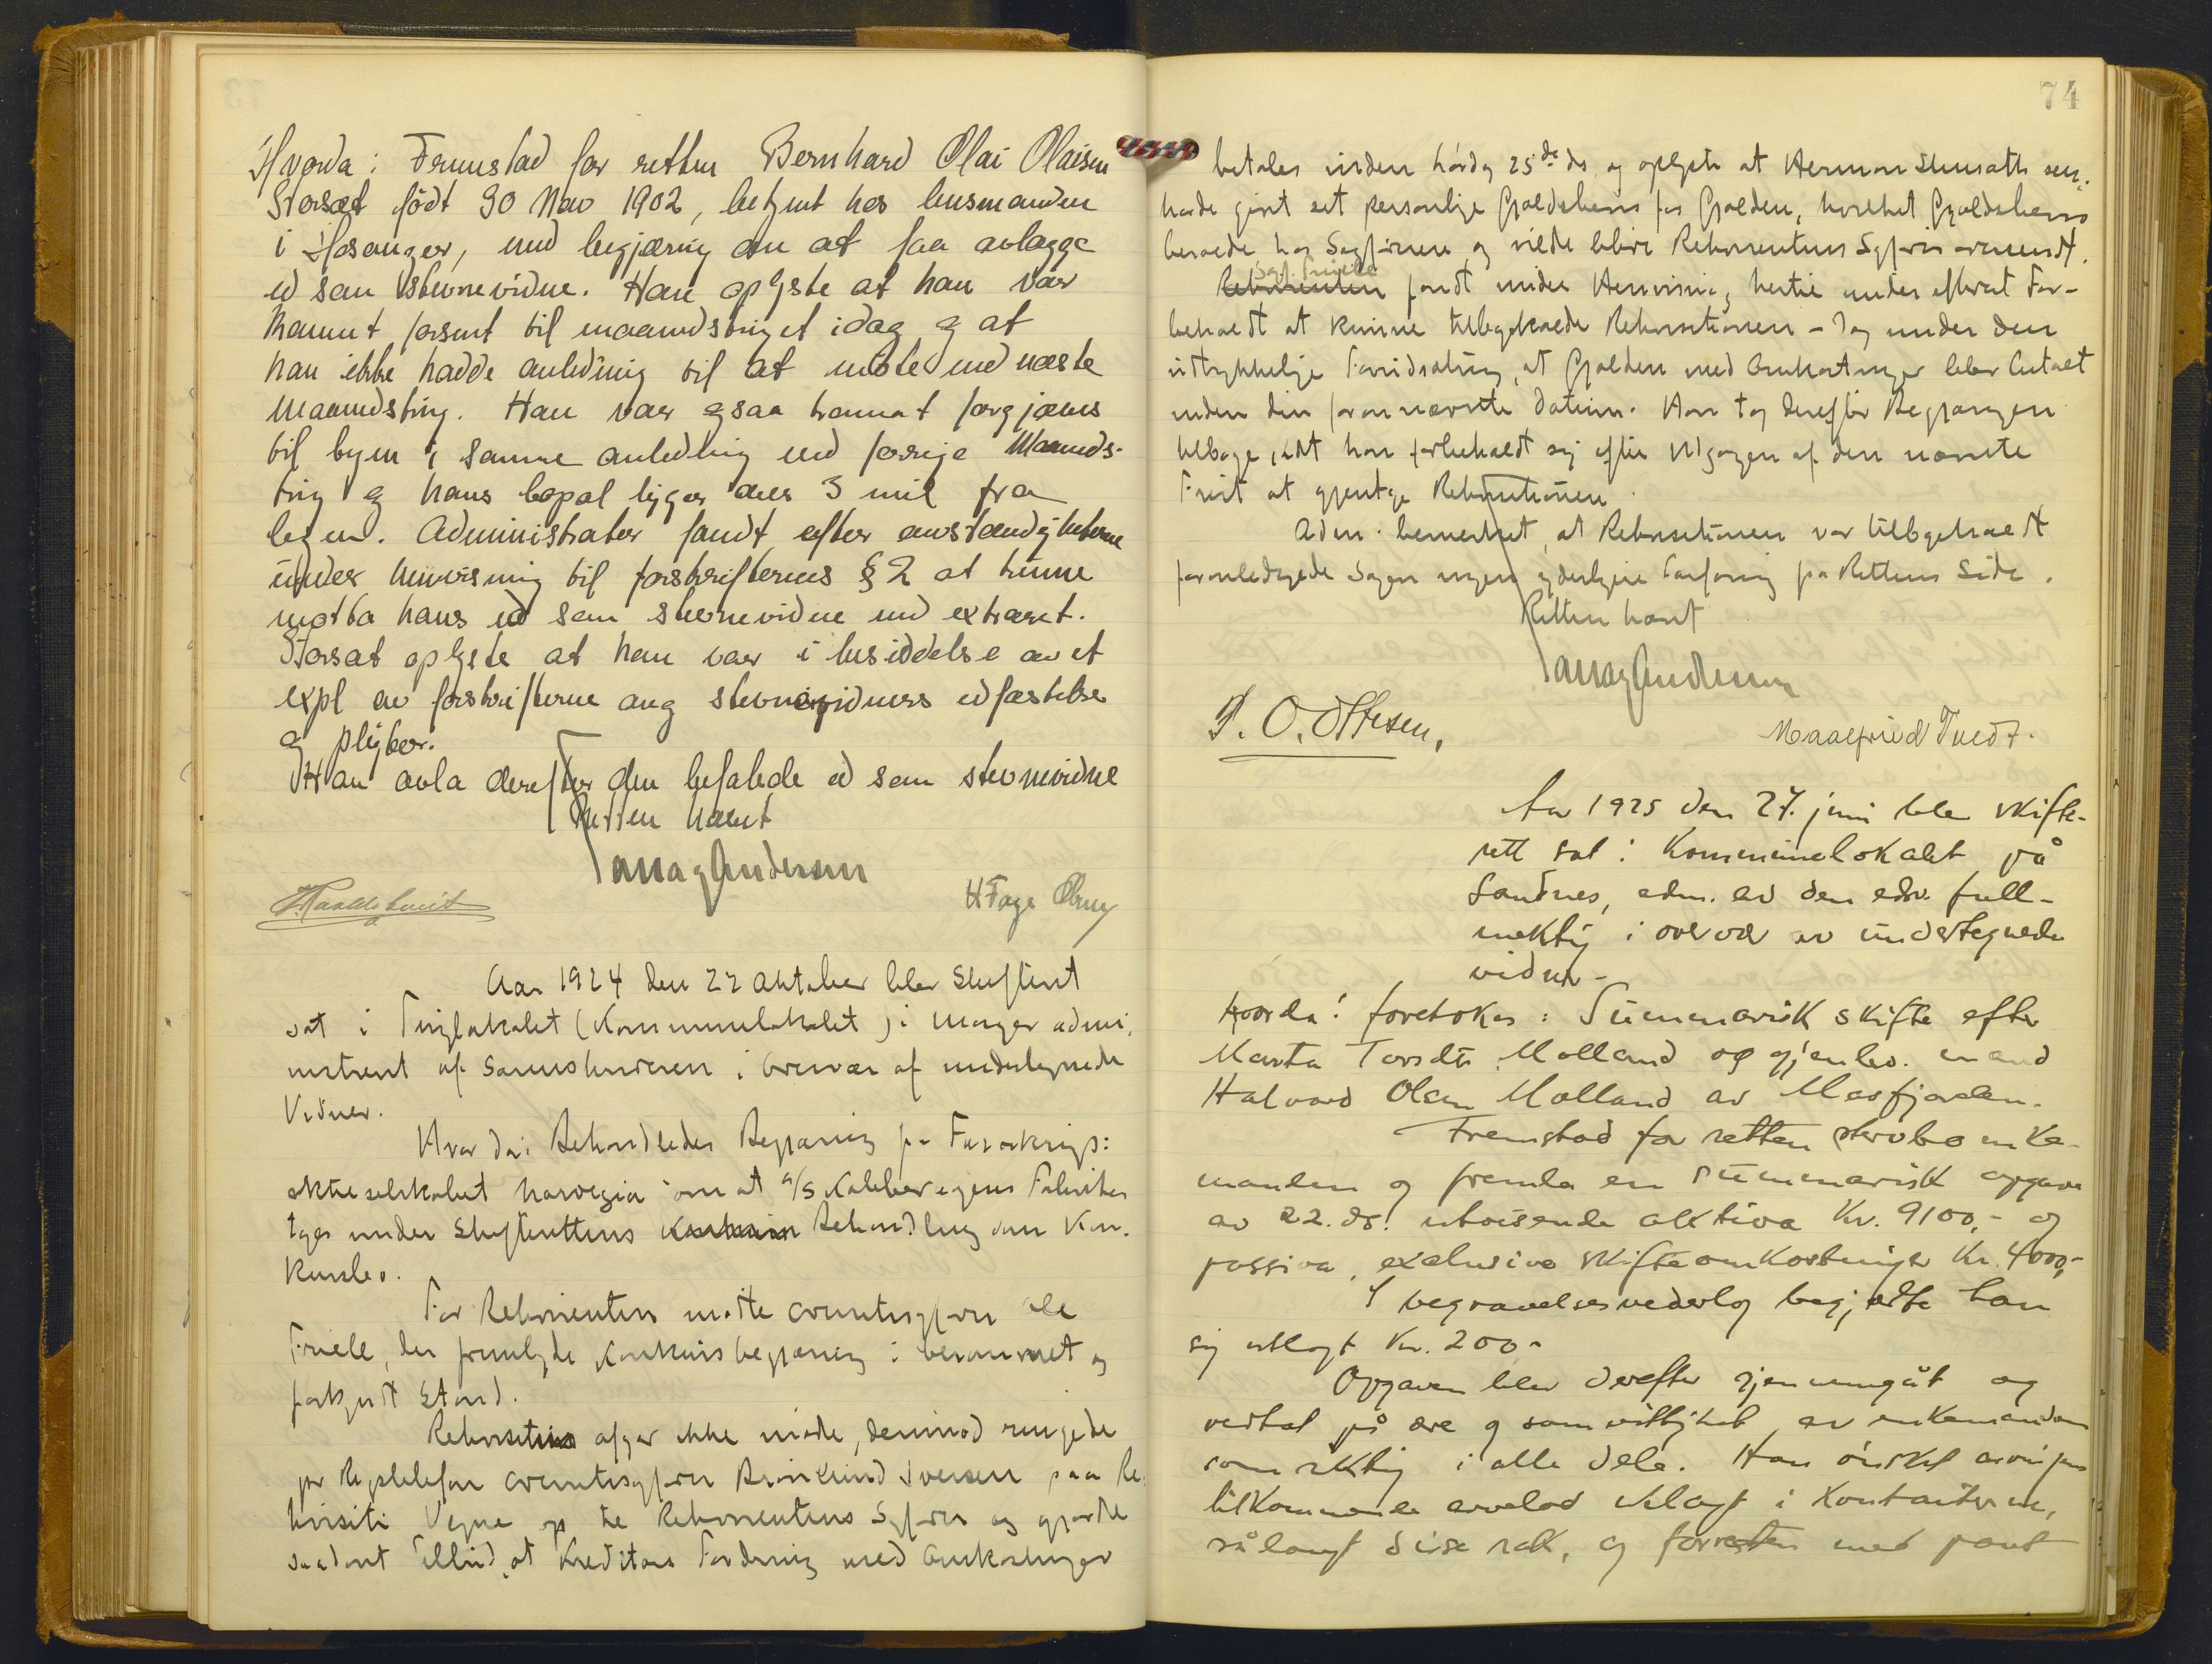 Hvorda: Fremstod for retten Bernhard Olai Olaisen
Storsæt født 30 Nov 1902, betjent hos lensmanden
i Hosanger, med begjæring om at faa avlægge
ed som stevnevidne. Han oplyste at han var
kommet forsent til maanedstinget idag og at
han ikke hadde anledning til at møte ved næste
maanedsting. Han var ogsaa kommet forgjæves
til byen i samme anledning ved forrige Maaneds-
ting og hans bopæl ligger ca 3 mil fra
byen. Administrator fandt efter omstændigheterne
under henvisning til forskrifternes § 2 at kunne
motta hans ed som stevnevidne ved extraret.
Storsæt oplyste at han var i besiddelse av et
expl av forskrifterne ang stevnevidners edfæstelse
og pligter.
Han avla derefter den befalede ed som stevnevidne
Retten hævet
Andersen
H Fage
Aar 1924 den 22 Oktober blev Skifteret
sat i Tinglokalet (Kommunelokalet) i Manger admi-
nistreret af Sorenskriveren i Overvær af undertegnede
Vidner.
Hvor da: Behandledes Begjæring fra Forsikrings:
aktieselskabet Norvegia om at A/S Kalvhavegens Fabriker
tages under Skifterettens Behandling som Kon-
kursbo.
For Rekvirenten mødte overretssagfører Ole
Friele, der fremlagde Konkursbegjæring i berammet og
forkyndt Stand.
Rekvisitus afgav ikke møde, derimod ringede
pr Rigstelefon overretssagfører Iversen paa Re-
kvisiti Vegne op til Rekvirentens Sagfører og gjorde
saadant Tilbud, at Kreditors Fordring med Omkostninger
74
betales inden lørdag 25de ds og oplyste at Herman sen.
havde givet et personlige Gjældsbevis for Gjælden, hvilket Gjældsbevis
beroede hos Sagføreren og vilde blive Rekvirentens Sagfører oversendt.
Sagf. Friele
Rekvirenten fandt under Henvisning hertil under ethvert For-
behold at kunne tilbagekalde Rekvisitionen - dog under den
udtrykkelige Forudsætning, at Gjælden med Omkostninger blev betalt
inden den forannævnte Datum. Han tog derefter Begjæringen
tilbage, idet han forbeholdt sig efter Udgangen af den nævnte
Frist at gjentage Rekvisitionen.
Adm. bemerket, at Rekvisitionen var tilbagekaldt
foranledigede Sagen ingen yderligere Forføining fra Rettens Side.
Retten hævet
Andersen
P. O. Ottesen,
Maalfrid Tvedt.
Aar 1925 den 27. juni blev skifte-
rett sat i Kommunelokalet på
Sandnes, adm. av den edsv. full-
mektig i overvær av undertegnede
vidner -
Hvorda: foretokes: Summarisk skifte efter
Marta Torsdtr. Molland og gjenlev. mand
Halvard Olsen Molland av Masfjorden.
Fremstod for retten sterboenke-
manden og fremla en summarisk opgave
av 22. ds. utvisende aktiva kr. 9100,- og
passiva, exclusive skifteomkostninger kr. 4000,-
I begravelsesvederlag begjærte han
sig utlagt kr. 200.-
Opgaven blev derefter gjennemgåt og
vedtat på ære og samvittighet av enkemanden
som riktig i alle dele. Han ønsket arvingene
tilkommende arvelod utlagt i kontanterne,
sålangt disse rak, og forresten med pant